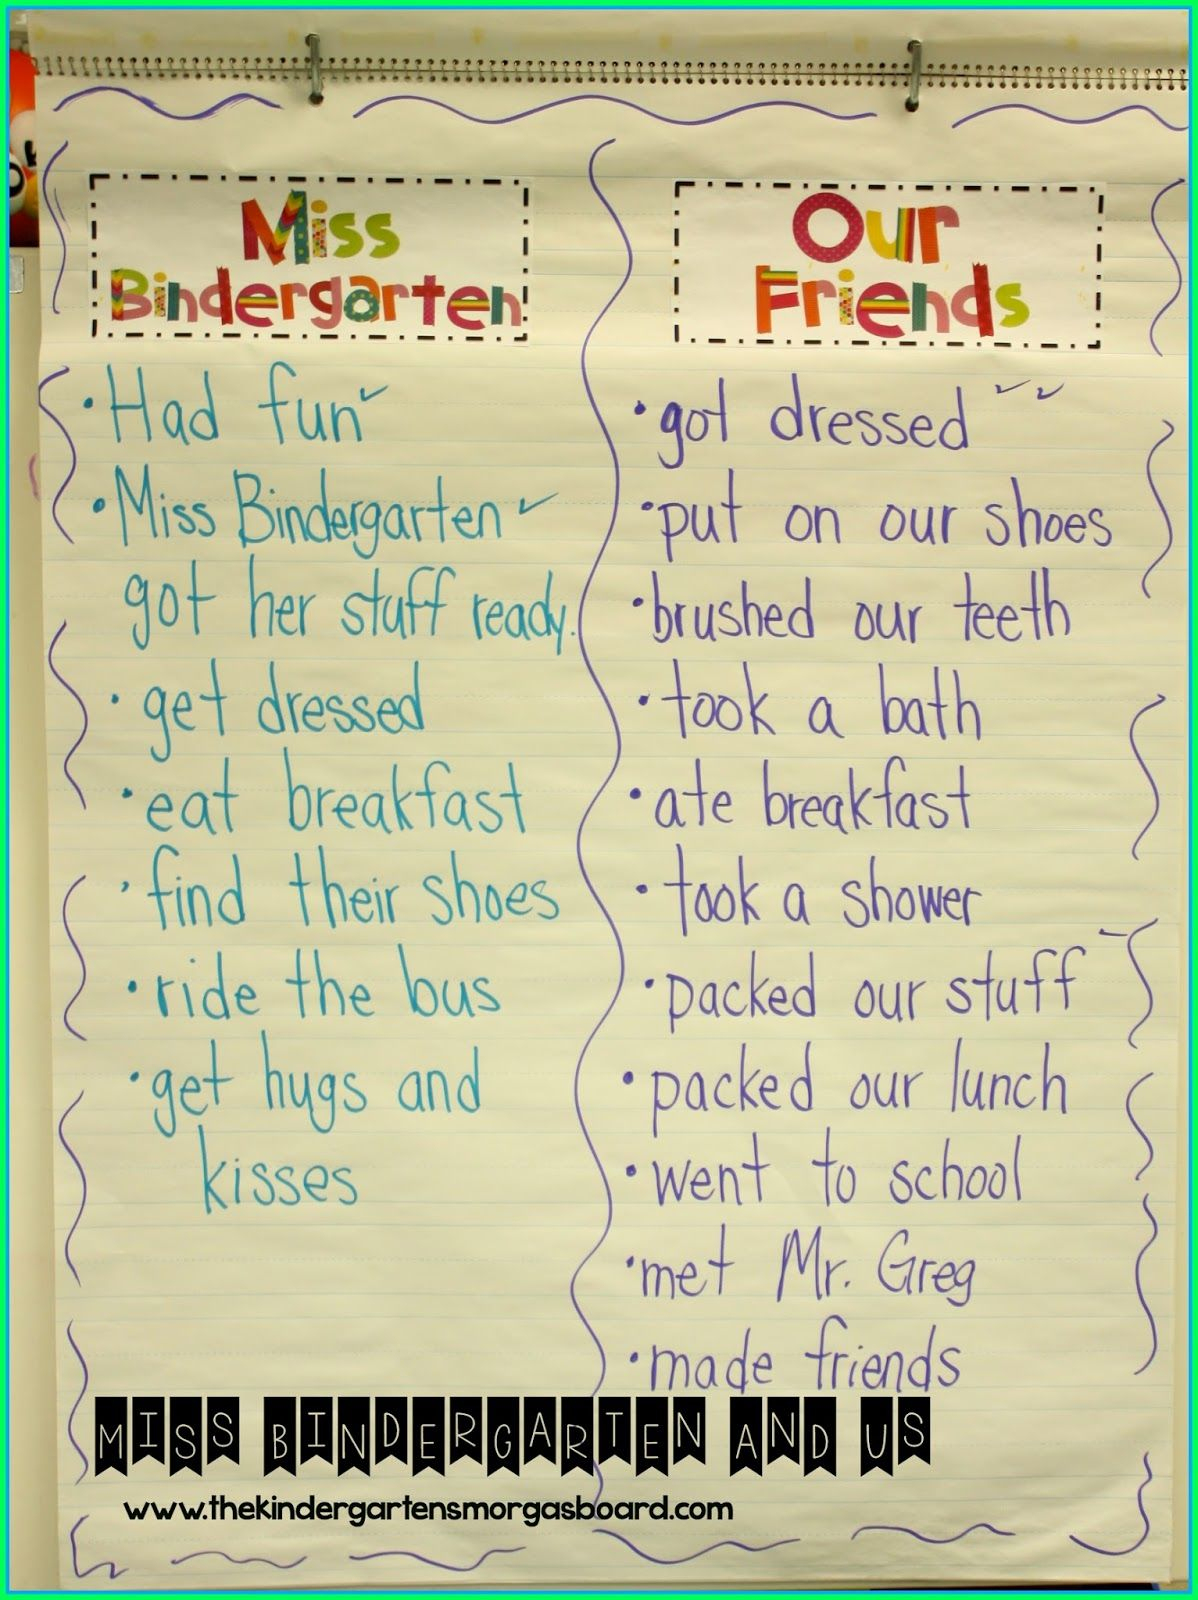 Miss
Bindergarten
• Had fun ✓
• Miss Bindergarten ✓
got her stuff ready.
• get dressed
• eat breakfast
• find their shoes
• ride the bus
• get hugs and
kisses
Our
Friends
• got dressed ✓✓
• put on our shoes
• brushed our teeth
• took a bath
• ate breakfast
• took a shower
• packed our stuff
• packed our lunch
• went to school
• met Mr. Greg
• made friends
MISS BINDERGARTEN AND US
www.thekindergartensmorgasboard.com